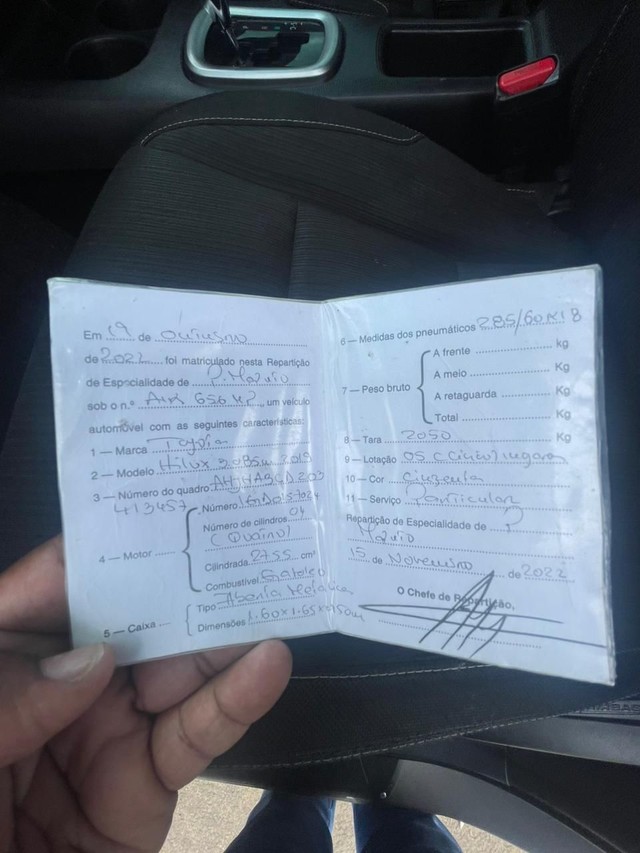 Em 19 de Outubro
de 2022 foi matriculado nesta Repartição
de Especialidade de P. Maputo
sob o n.º 656 MP, um veículo
automóvel com as seguintes características:
1 — Marca Toyota
2 — Modelo Hilux 2019
3 — Número do quadro AHJHA3CD203
413457
4 — Motor Número 1GD0157024
Número de cilindros 04
(Quatro)
Cilindrada 2755 cm³
Combustível Gasoleo
5 — Caixa Tipo Aberta Metalica
Dimensões 1.60x1.65x
6 — Medidas dos pneumáticos 285/60R18
7 — Peso bruto
A frente Kg
A meio Kg
A retaguarda Kg
Total Kg
8 — Tara 2050 Kg
9 — Lotação 05 (Cinco) lugares
10 — Cor Cinzenta
11 — Serviço Particular
Repartição de Especialidade de P
Maputo
15 de Novembro de 2022
O Chefe de Repartição,